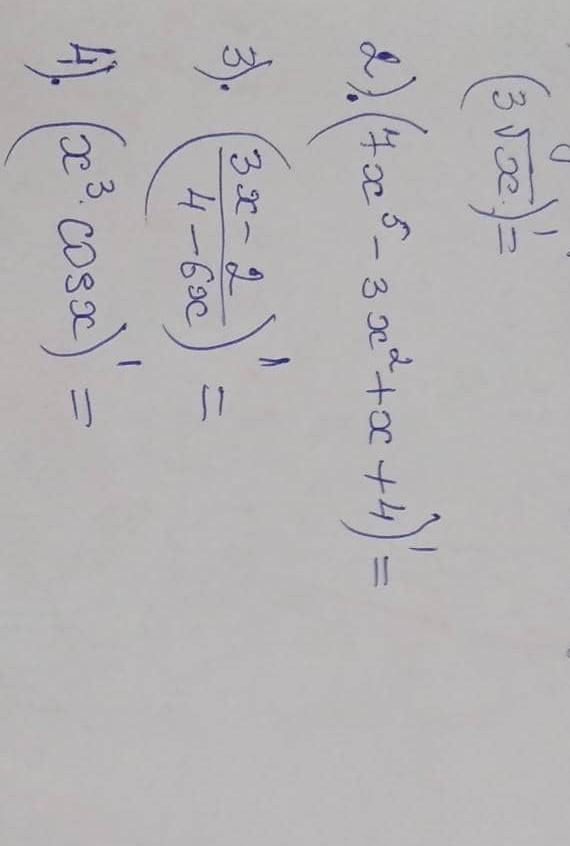 (3√x)' =
2). (7x⁵ - 3x² + x + 4)' =
3). ((3x - 2)/(4 - 6x))' =
4). (x³ · cosx)' =